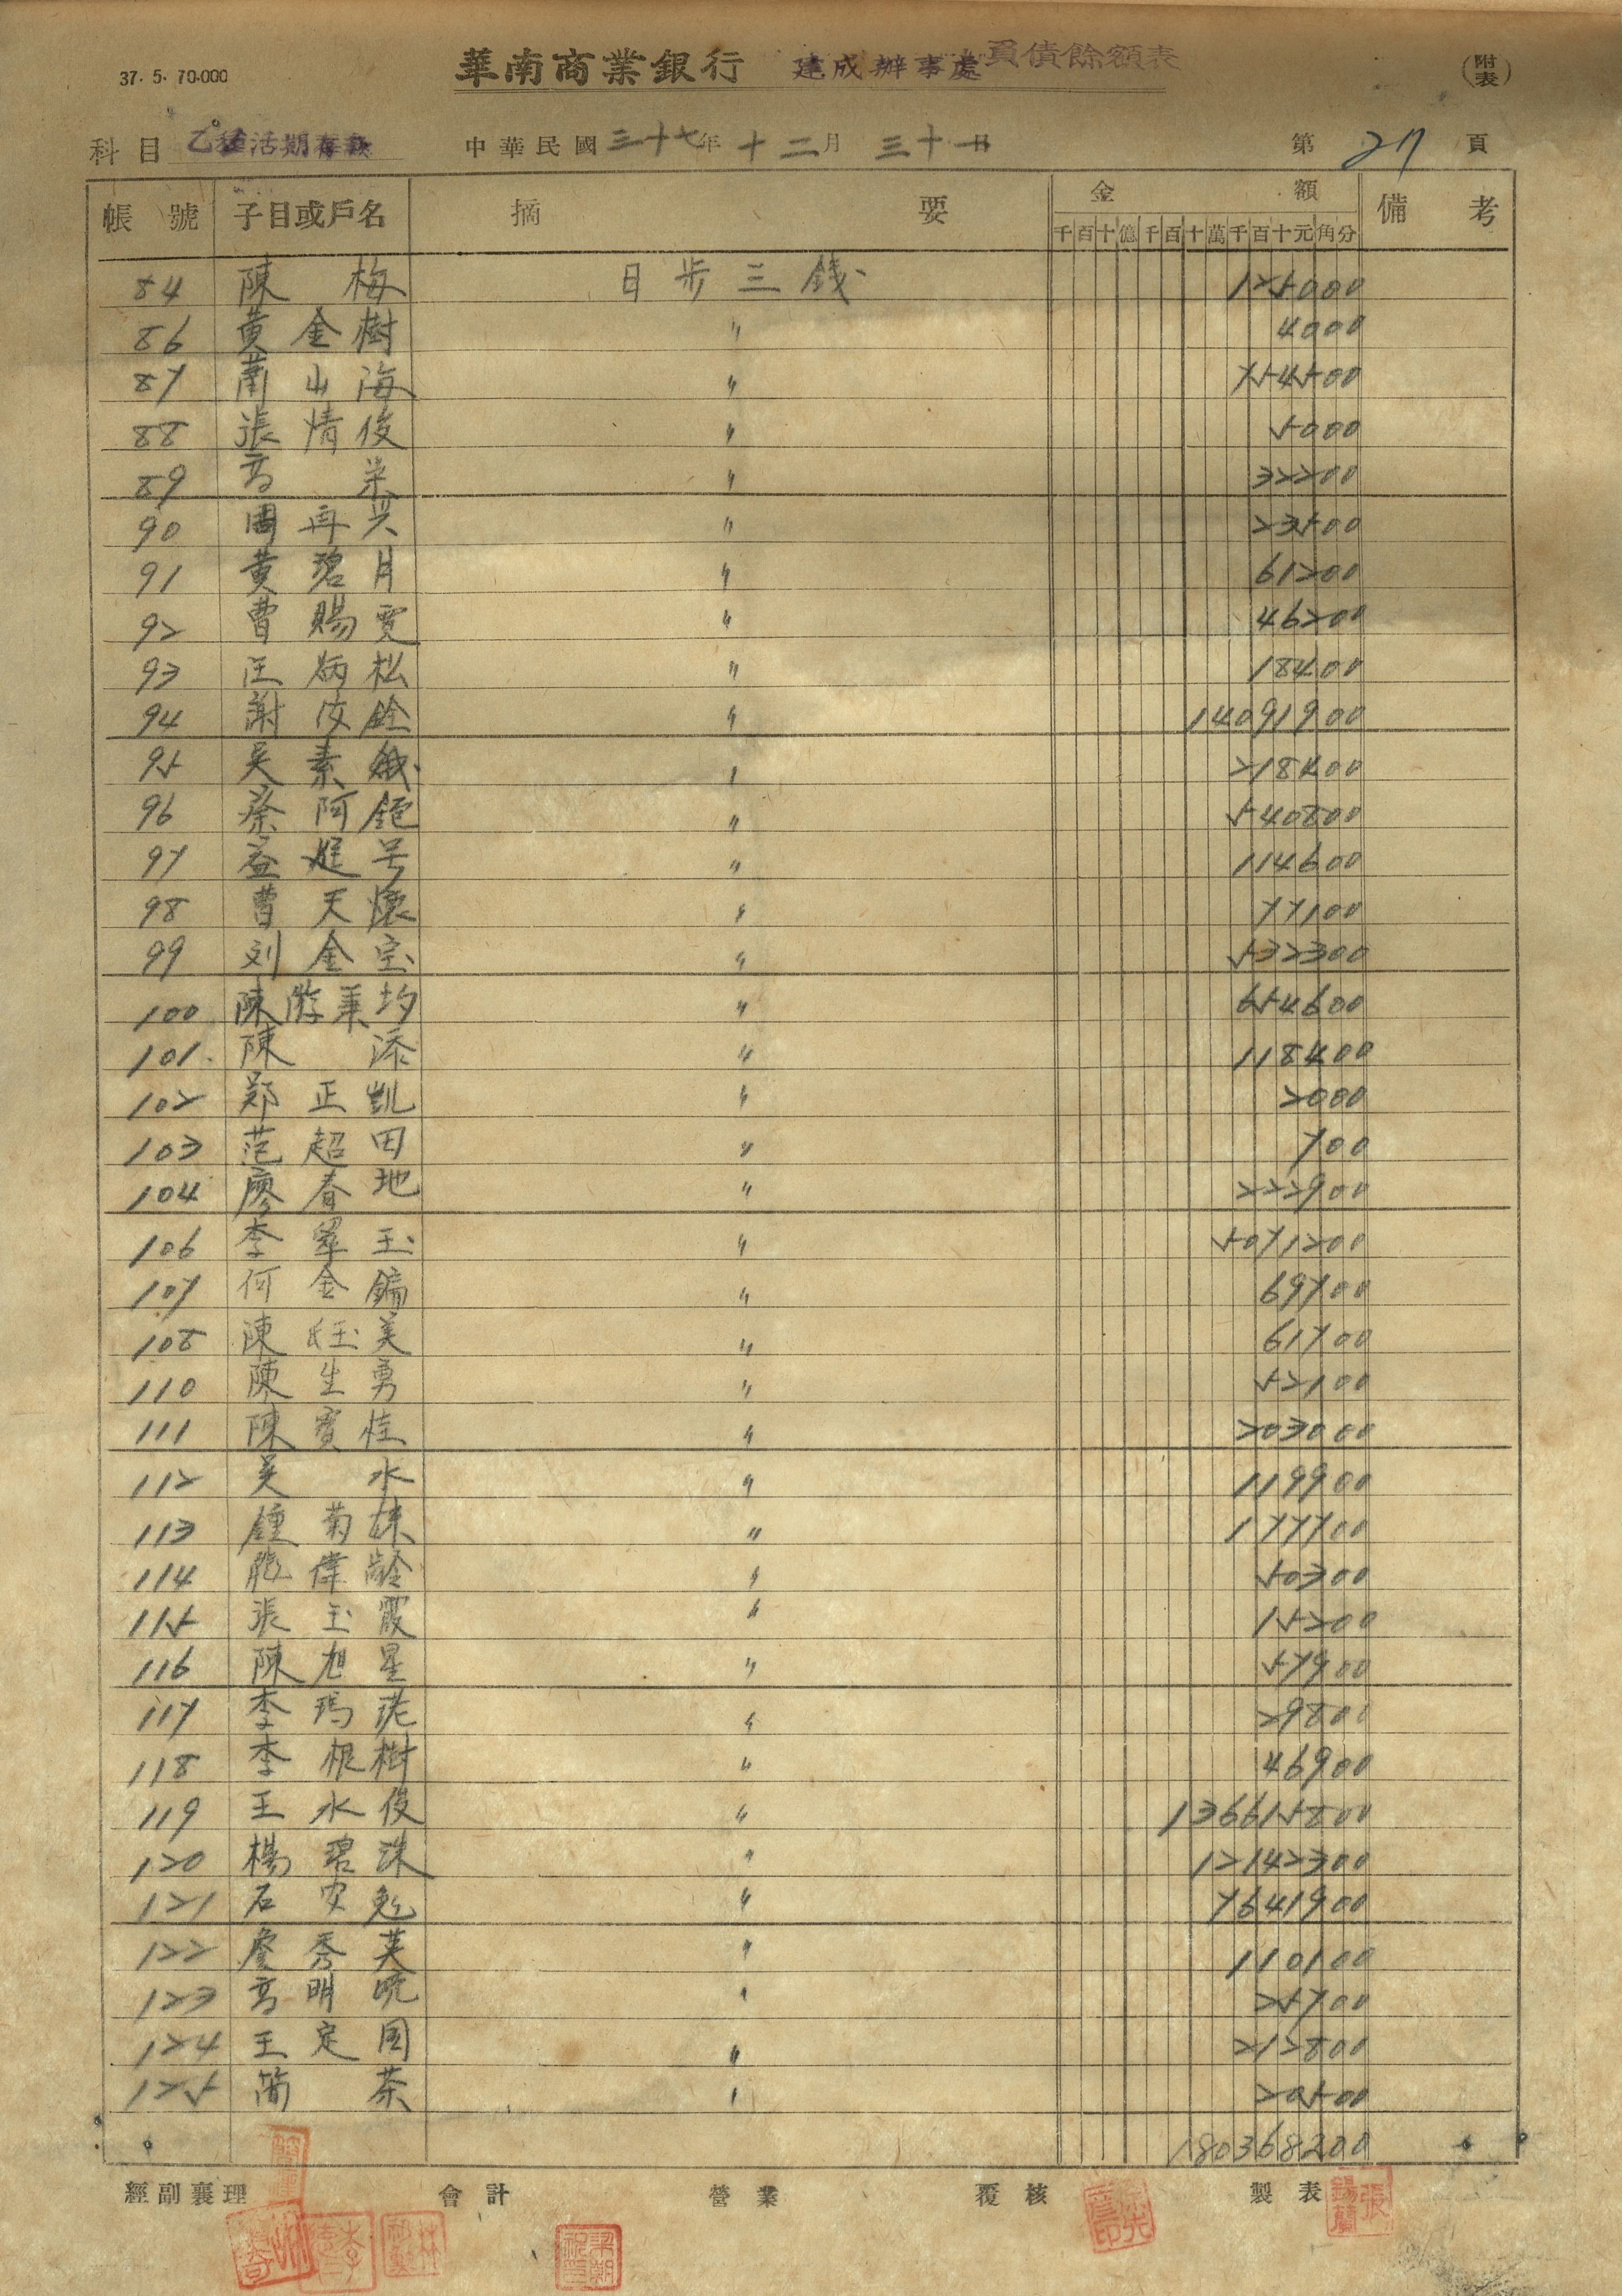 37. 5. 70.000
華南商業銀行 建成辦事處 負債餘額表 (附表)
科目 乙種活期存款 中華民國三十七年十二月三十一日 第27頁
帳號 子目或戶名 摘要 金額 備考
千百十億千百十萬千百十元角分
84 陳梅 日步三錢 125000
86 黃金樹 〃 4000
87 蕭山海 〃 754500
88 張情俊 〃 5000
89 高 〃 32200
90 周再兴 〃 23500
91 黃碧月 〃 61200
92 曹賜 〃 46200
93 炳松 〃 18400
94 謝 〃 14091900
95 吳素娥 〃 218400
96 蔡阿 〃 540800
97 益 号 〃 114600
98 曹天懷 〃 77100
99 刘金宝 〃 532300
100 陳 〃 654600
101 陳添 〃 118400
102 鄭正凱 〃 2000
103 范超田 〃 700
104 廖春地 〃 222900
106 李翠玉 〃 5071200
107 何金鏞 〃 69700
108 陳 美 〃 61700
110 陳生勇 〃 52100
111 陳寶桂 〃 203000
112 吳水 〃 119900
113 鍾菊妹 〃 177700
114 偉齡 〃 50300
115 張玉霞 〃 15200
116 陳旭星 〃 57900
117 李瑪 〃 29800
118 李根樹 〃 46900
119 王水俊 〃 136615800
120 楊碧珠 〃 12142300
121 石安 〃 7641900
122 詹秀英 〃 110100
123 高明 〃 25700
124 王定国 〃 212800
125 簡茶 〃 20500
180368200
經副襄理 會計 營業 覆核 製表
張錫蘭